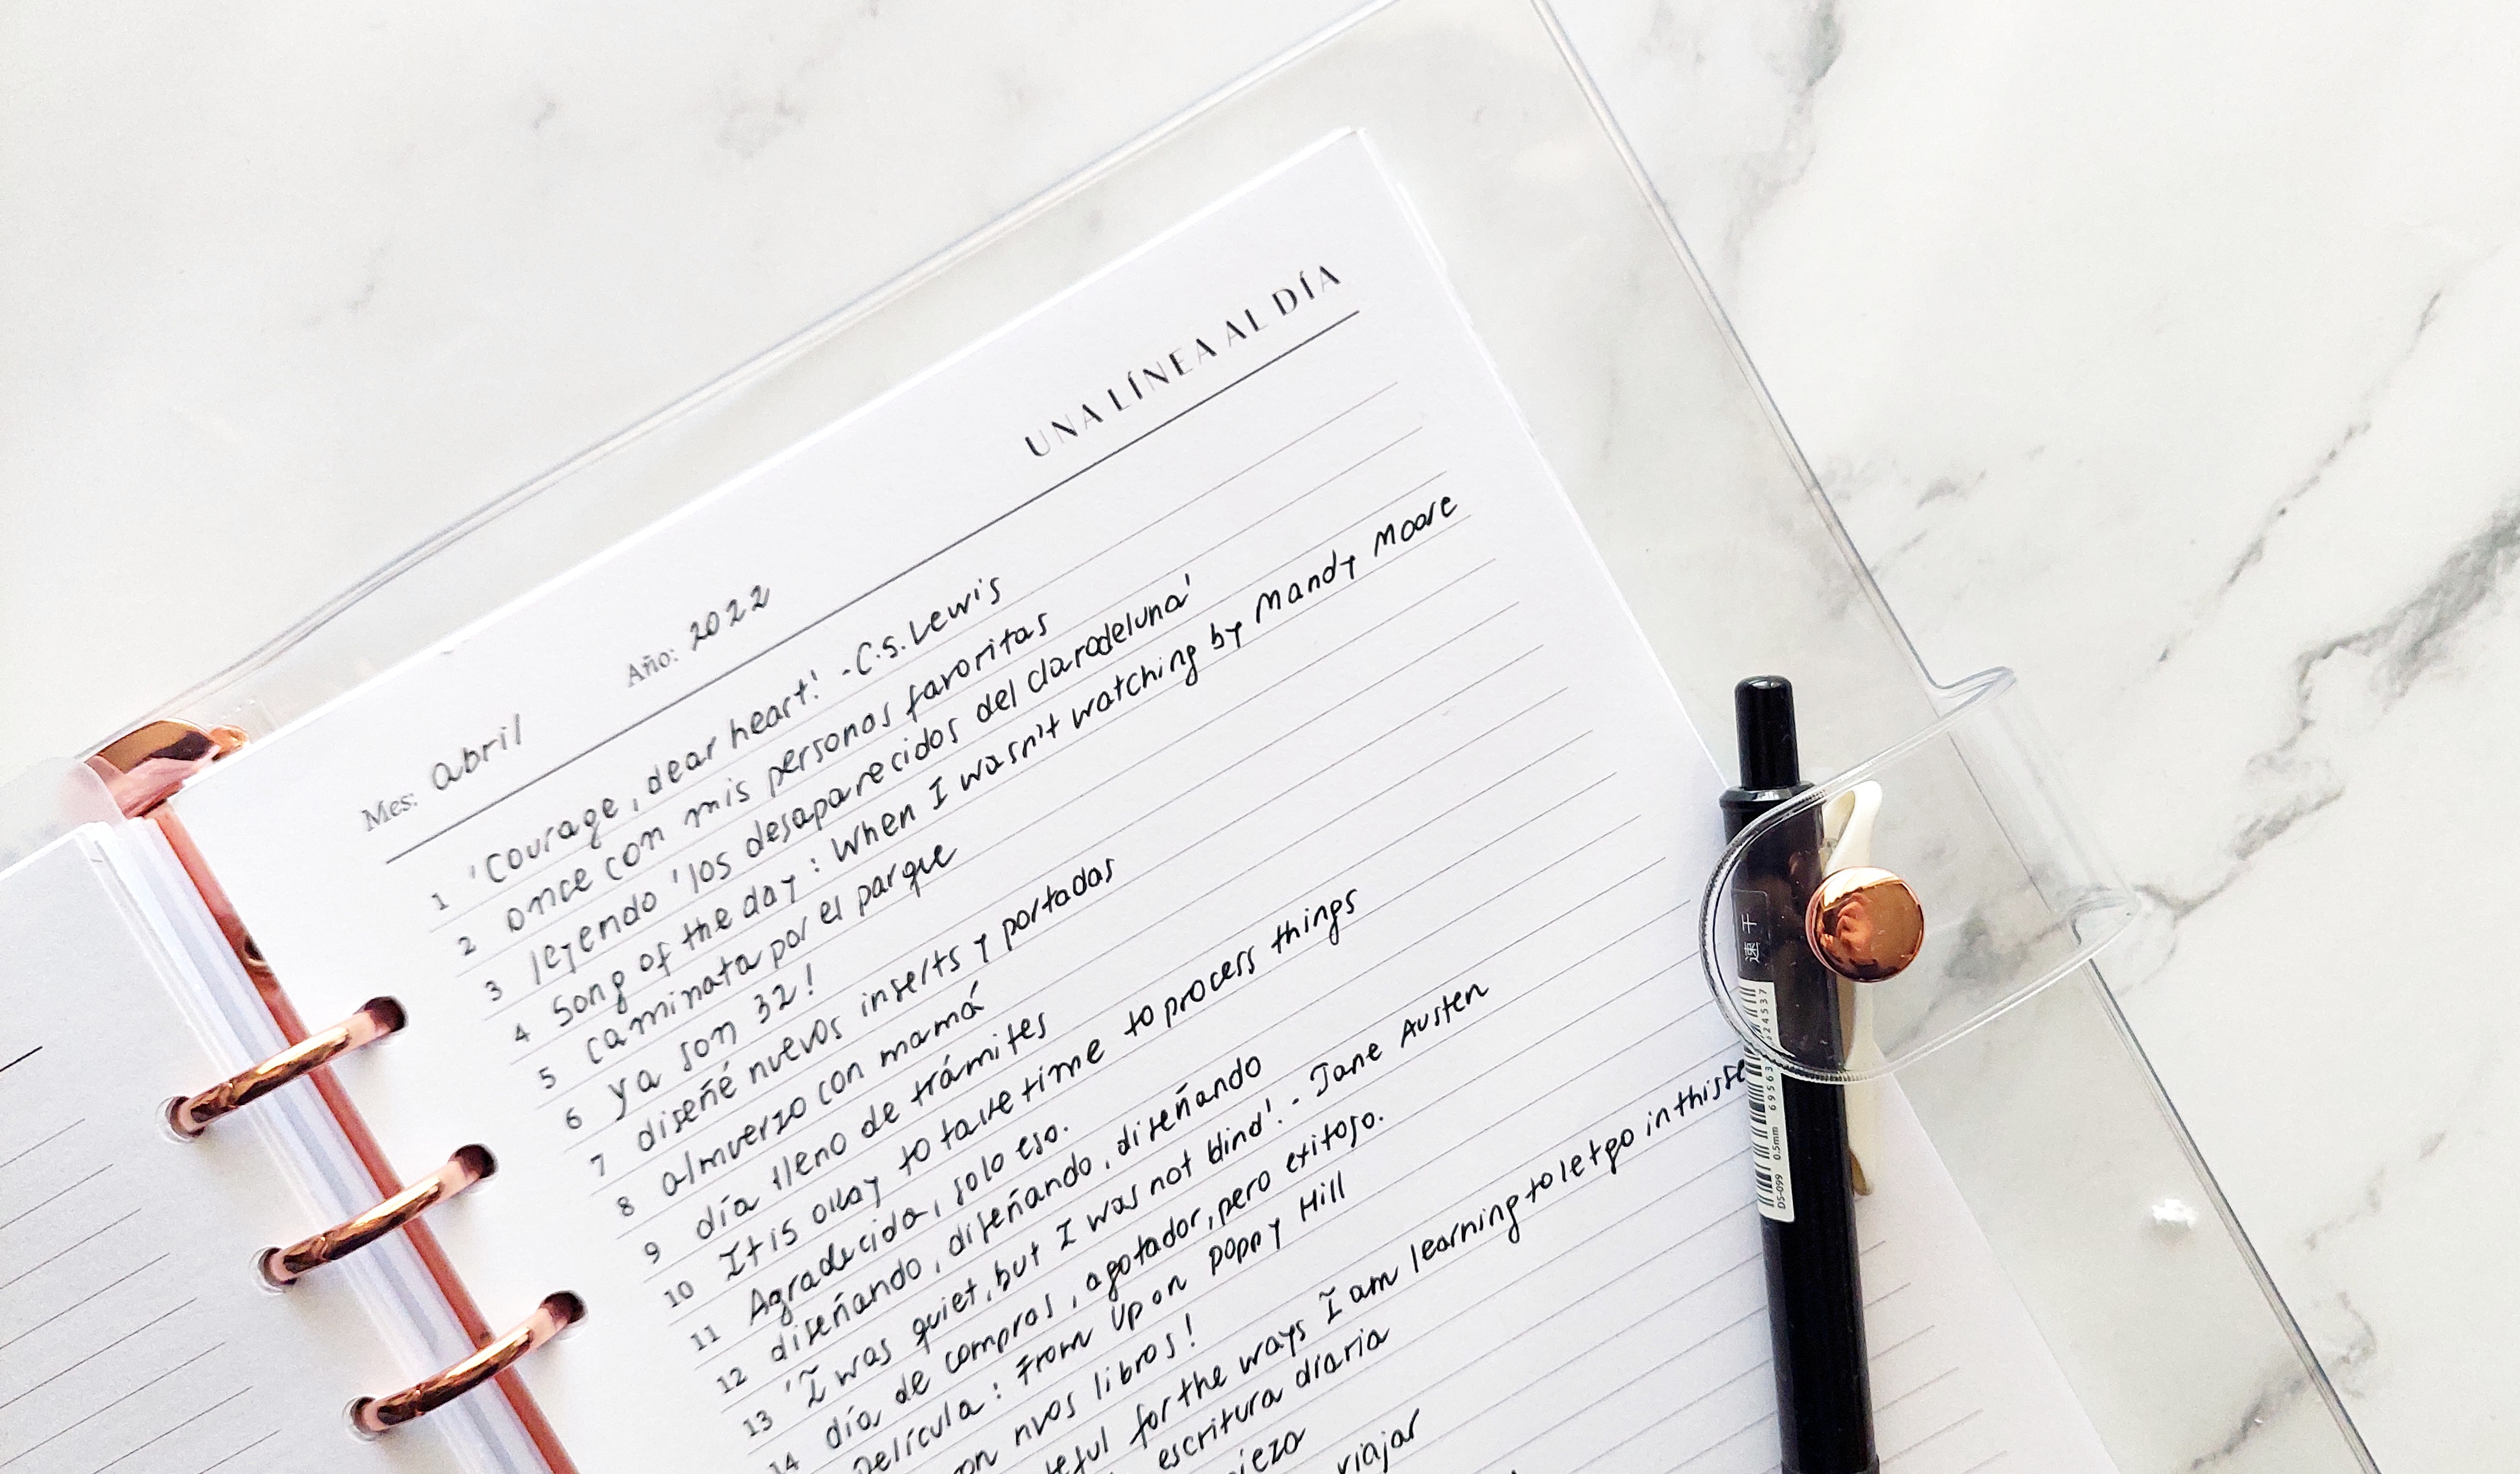 UNA LÍNEA AL DÍA
Mes: abril Año: 2022
1 'Courage, dear heart'. -C.S. Lewis
2 once con mis personas favoritas
3 leyendo 'los desaparecidos del claradeluna'
4 Song of the day: When I wasn't watching by Mandy Moore
5 caminata por el parque
6 ya son 32!
7 diseñé nuevos inserts y portadas
8 almuerzo con mamá
9 día lleno de trámites
10 It is okay to take time to process things
11 Agradecida, solo eso.
12 diseñando, diseñando, diseñando
13 'I was quiet, but I was not blind'. - Jane Austen
14 día de compras, agotador, pero exitoso.
película: From Up on Poppy Hill
nvos libros!
for the ways I am learning to let go in this
escritura diaria
viajar
速干
DS-099 0.5mm